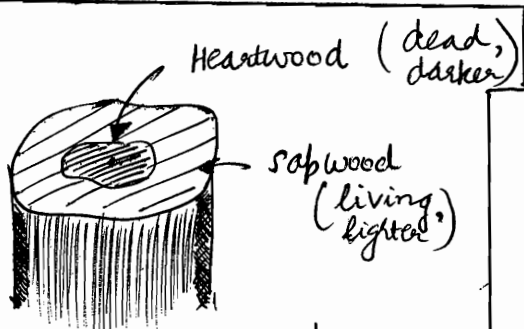 Heartwood (dead,
darker)
sapwood
(living,
lighter)